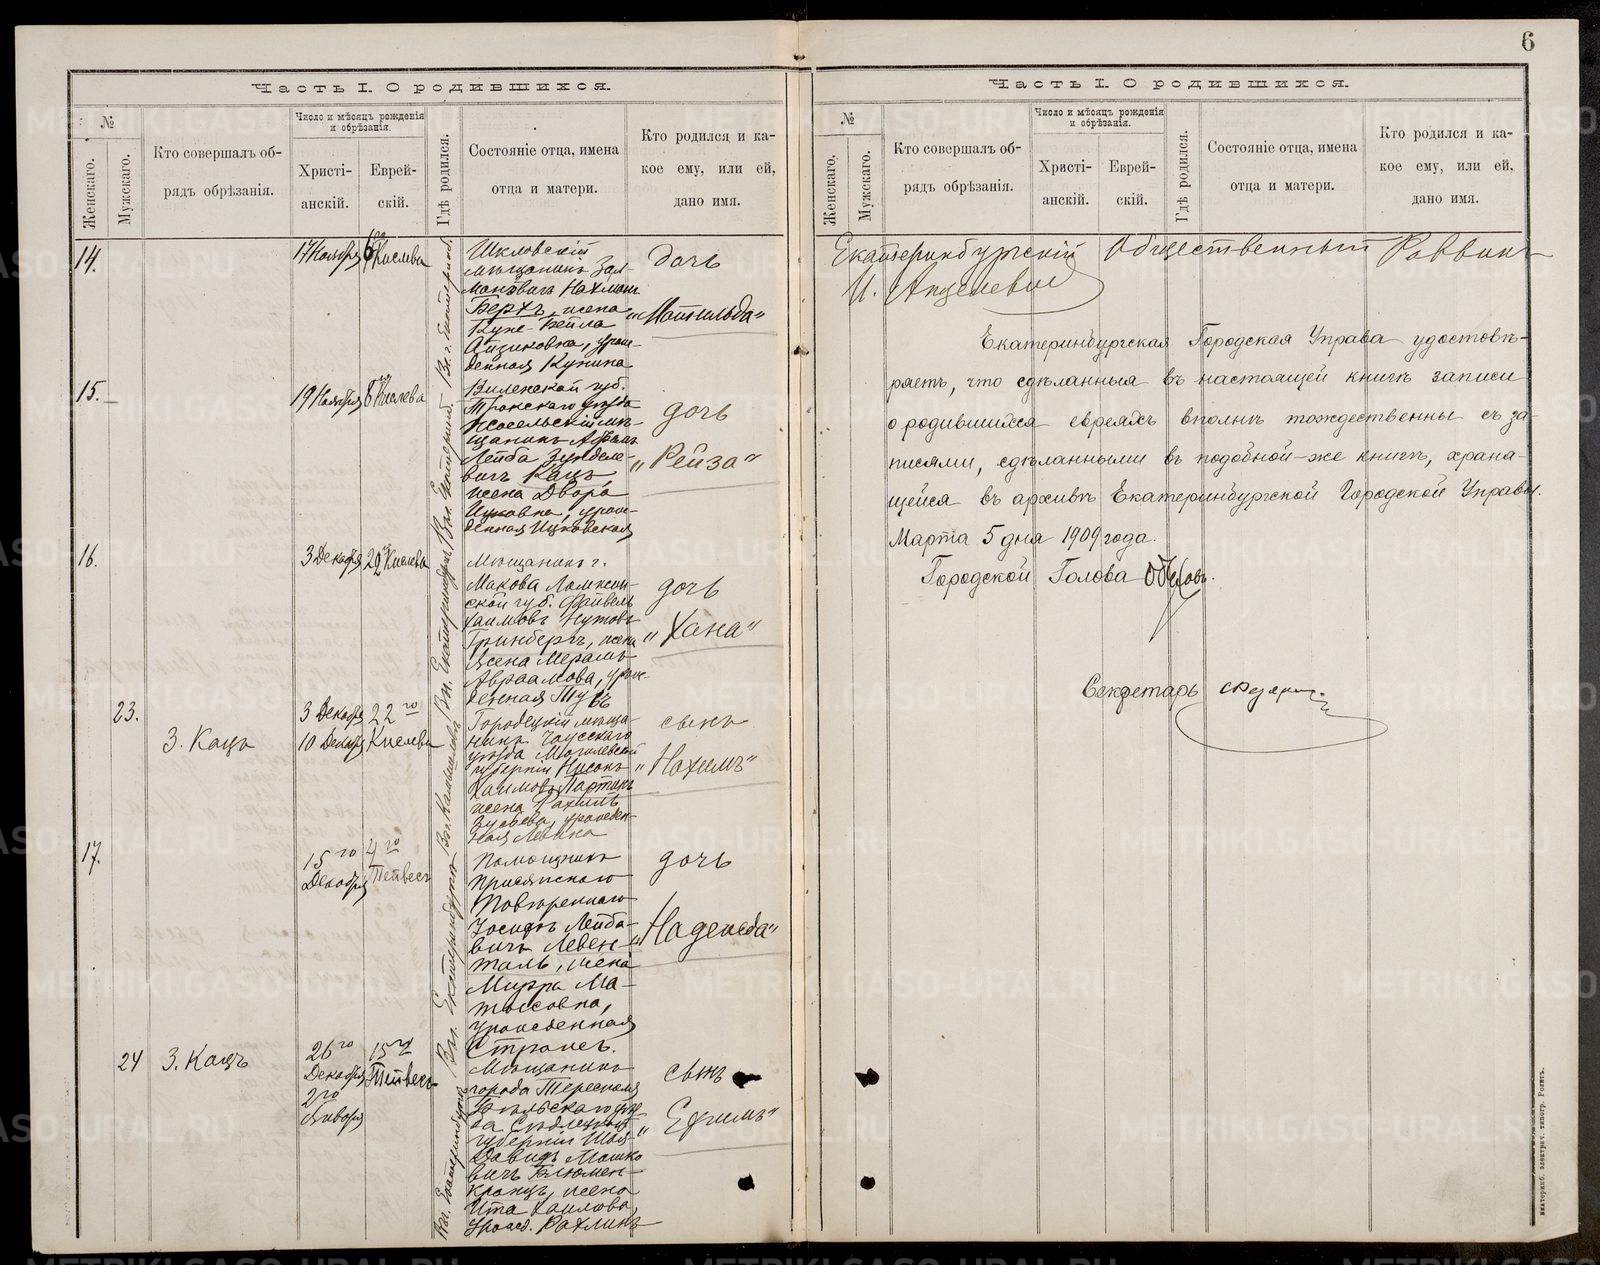 6
Часть I. О родившихся.
№
Женскаго.
Мужскаго.
Кто совершалъ об-
рядъ обрѣзанія.
Число и мѣсяцъ рожденія
и обрѣзанія.
Христі-
анскій.
Еврей-
скій.
Гдѣ родился.
Состояніе отца, имена
отца и матери.
Кто родился и ка-
кое ему, или ей,
дано имя.
14.
17 Ноября
6го Кислева
Шкловскій
мѣщанинъ Зал-
мановичъ Нахманъ
Берхъ, жена
Куне-Бейла
Айзиковна, урож-
денная Кунина
дочь
"Матильда"
15.
19 Ноября
8 Кислева
Виленской губ.
Трокскаго уѣзда
мѣ-
щанинъ
Лейба Зунделе-
вичъ Кацъ,
жена Двора
Ицковна, урож-
денная Ицковская
дочь
"Рейза"
16.
3 Декабря
22 Кислева
Мѣщанинъ г.
Макова Ломжин-
ской губ. Файвель
Хаимовъ Нутовъ
Гринбергъ, жена
Авраамова, урож-
денная
дочь
"Хана"
23.
З. Кацъ
3 Декабря
10 Декабря
22го
Кислева
Городецкій мѣща-
нинъ Чаусскаго
уѣзда Могилевской
губерніи Нисонъ
жена Рахиль
урожден-
ная Левина
сынъ
"Нахимъ"
17.
15го
Декабря
4го
Тейвесъ
Помощникъ
присяжнаго
повѣреннаго
Іосифъ Лейба-
вичъ Левен-
таль, жена
Мирра Ма-
тысовна,
урожденная
Страисъ.
дочь
"Надежда"
24
З. Кацъ
26го
Декабря
2го
Января
15го
Тейвесъ
Мѣщанинъ
города Тересполя
Бѣльскаго уѣз-
да Сѣдлецкой
губерніи Шая-
Давидъ Мошко
вичъ Блюмен-
кранцъ, жена
Ита Хаимова,
урожд. Рахлинъ
сынъ
"Ефимъ"
Часть I. О родившихся.
№
Женскаго.
Мужскаго.
Кто совершалъ об-
рядъ обрѣзанія.
Число и мѣсяцъ рожденія
и обрѣзанія.
Христі-
анскій.
Еврей-
скій.
Гдѣ родился.
Состояніе отца, имена
отца и матери.
Кто родился и ка-
кое ему, или ей,
дано имя.
Екатеринбургскій Общественный Раввинъ
Екатеринбургская Городская Управа удостовѣ-
ряетъ, что сдѣланныя въ настоящей книгѣ записи
о родившихся евреяхъ вполнѣ тождественны съ за-
писями, сдѣланными въ подобной-же книгѣ, храня-
щейся въ архивѣ Екатеринбургской Городской Управы.
Марта 5 дня 1909 года.
Городской Голова Обуховъ.
Секретарь
METRIKI.GASO-URAL.RU